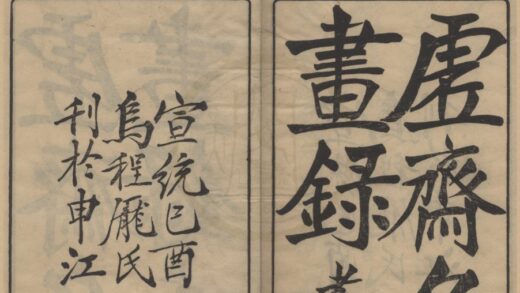 虛齋名
畫錄
宣統己酉
烏程龐氏
刊於申江